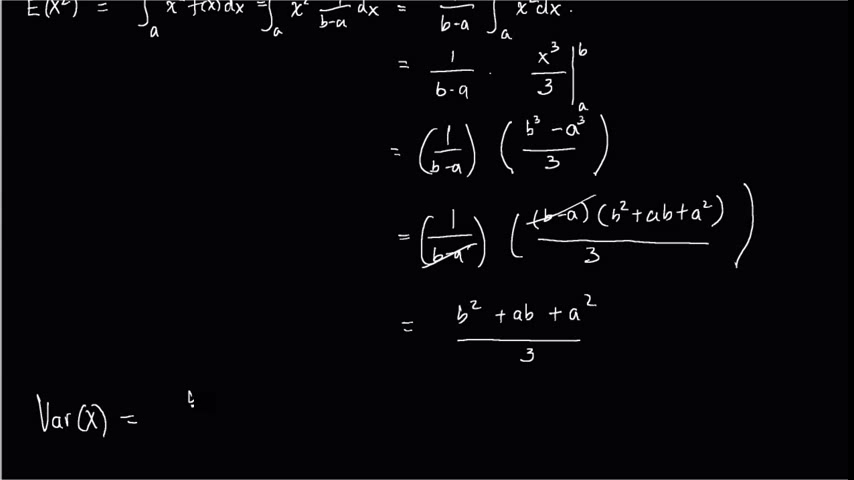 E(X²) = ∫ₐ x² f(x) dx = ∫ₐ x² 1/(b-a) dx = /(b-a) ∫ₐ x² dx.
= 1/(b-a) · x³/3 |ₐᵇ
= (1/(b-a)) ((b³ - a³)/3)
= (1/(b-a)) ((b-a)(b² + ab + a²)/3)
= (b² + ab + a²)/3
Var(X) =